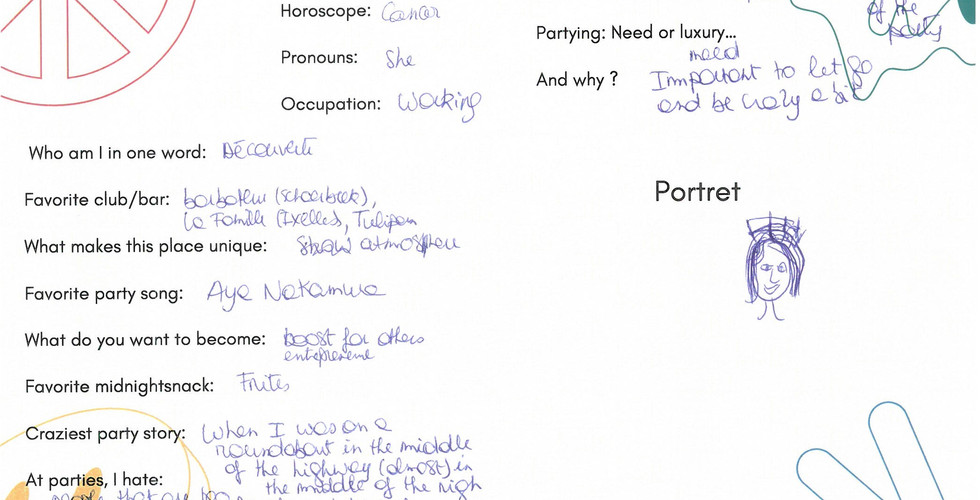 Horoscope: Cancer
Pronouns: She
Occupation: Working
Who am I in one word: Découverte
Favorite club/bar: barboteur (schaerbeek),
La Famille (Ixelles), Tulipan
What makes this place unique: atmosphere
Favorite party song: Aya Nakamura
What do you want to become: boost for others
Favorite midnightsnack: Frites
Craziest party story: When I was on a
roundabout in the middle
of the highway (almost) in
At parties, I hate: the middle of the nigh
people that are
of the
party
Partying: Need or luxury...
need
And why ? Important to let go
and be crazy a bit
Portret